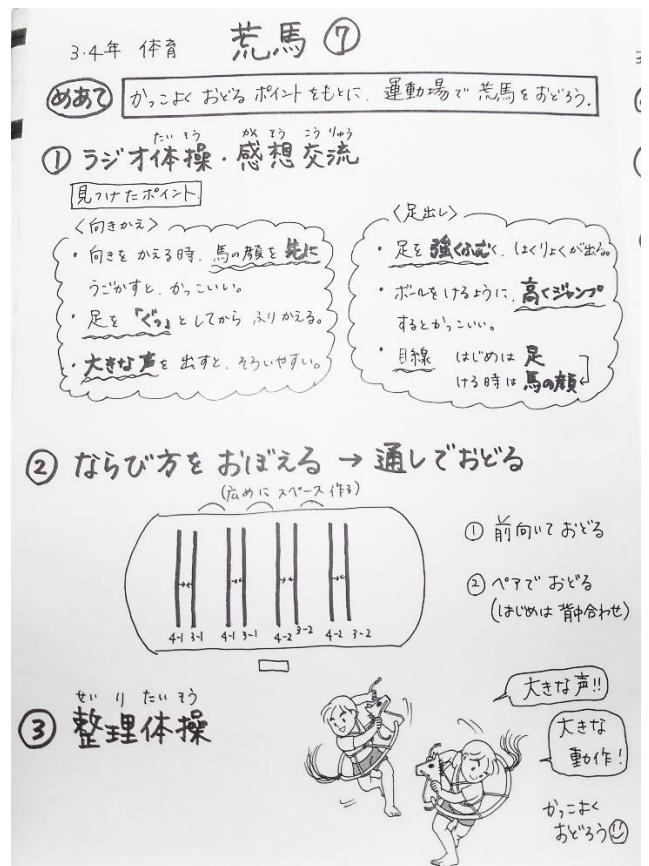 3・4年 体育 荒馬 ⑦
めあて かっこよく おどる ポイントをもとに、運動場で 荒馬をおどろう。
たいそう かんそう こうりゅう
① ラジオ体操・感想交流
見つけたポイント
〈向きかえ〉
・向きを かえる時、馬の顔を 先に
うごかすと、かっこいい。
・足を 『ぐっ』 としてから ふりかえる。
・大きな声を 出すと、そろいやすい。
〈足出し〉
・足を 強くふむく、はくりょくが出る。
・ボールをけるように、高くジャンプ
するとかっこいい。
・目線 はじめは 足
ける時は 馬の顔
② ならび方を おぼえる → 通しでおどる
(広めに スペース 作る)
4-1 3-1 4-1 3-1 4-2 3-2 4-2 3-2
① 前向いて おどる
② ペアで おどる
(はじめは 背中合わせ)
せいりたいそう
③ 整理体操
大きな声!!
大きな
動作!
かっこよく
おどろう